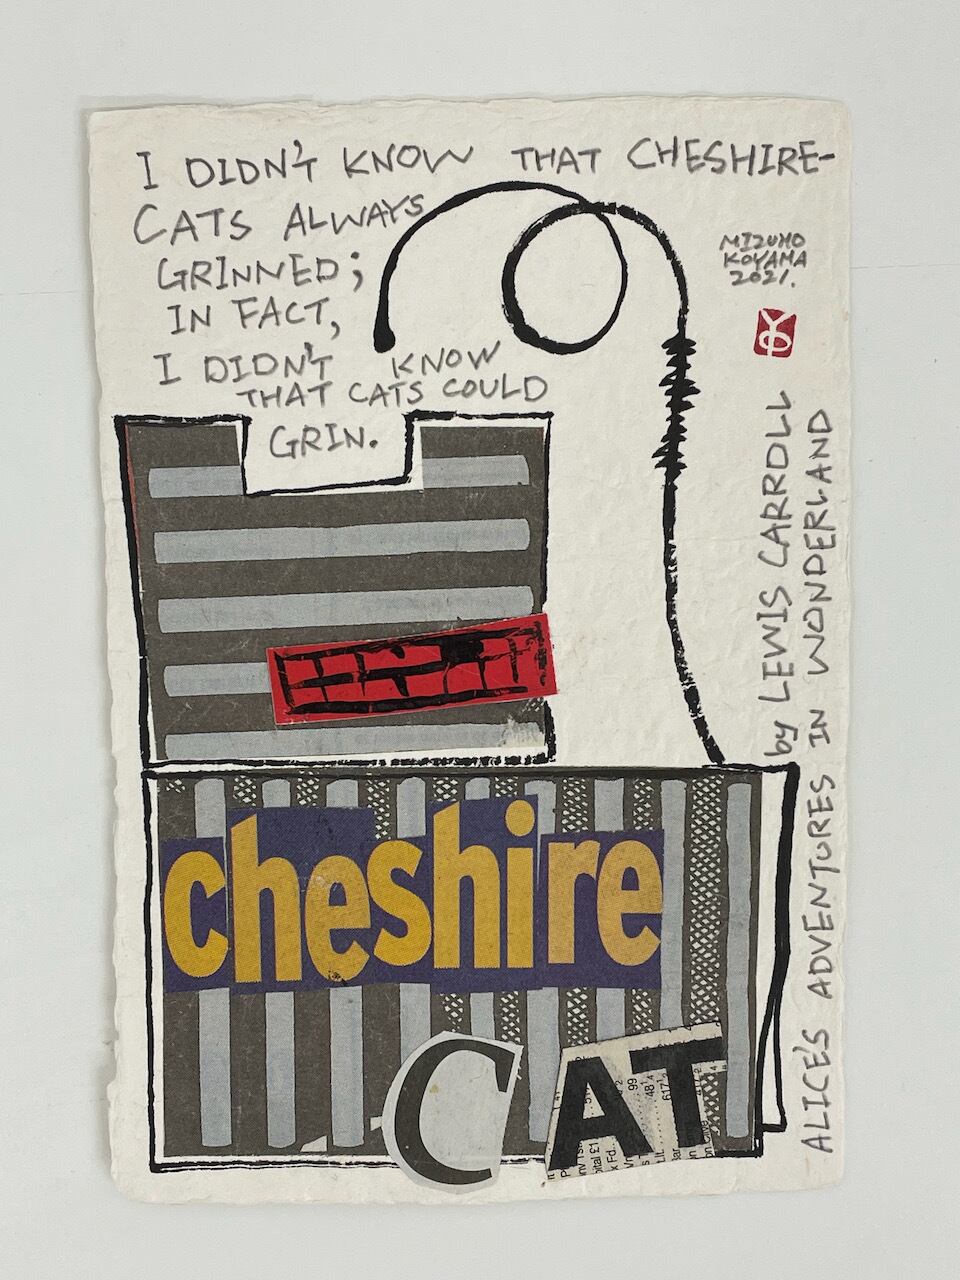 I DIDN'T KNOW THAT CHESHIRE-
CATS ALWAYS
GRINNED;
IN FACT,
I DIDN'T KNOW
THAT CATS COULD
GRIN.
MIZUHO
KOYAMA
2021.
by LEWIS CARROLL
ALICE'S ADVENTURES IN WONDERLAND
cheshire
CAT